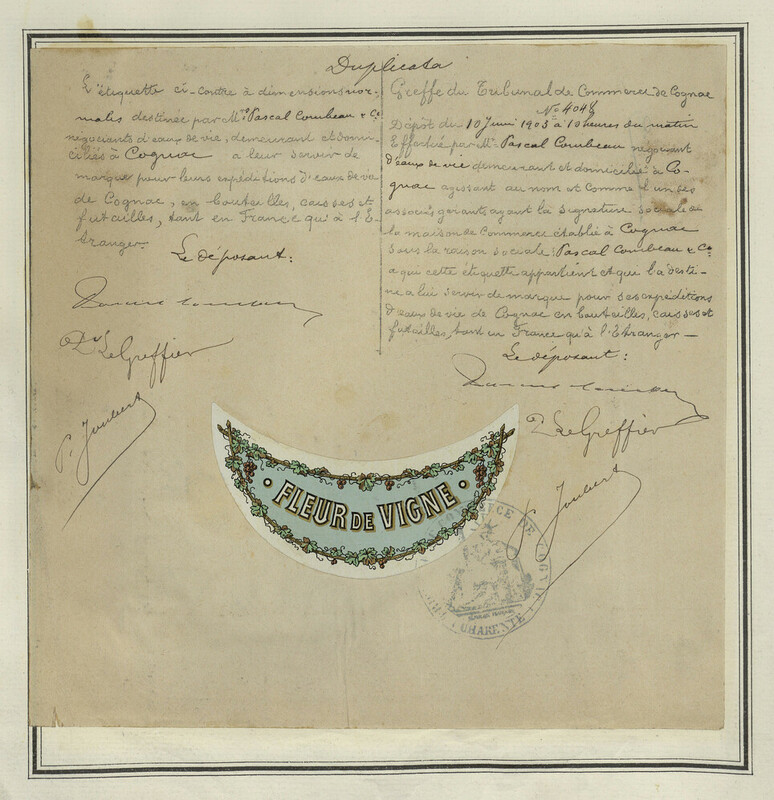 Duplicata
L'étiquette ci-contre à dimensions nor-
males destinée par Mrs Pascal Combeau & Cie
négociants d'eaux de vie, demeurant et domi-
ciliés à Cognac a leur servir de
marque pour leurs expéditions d'eaux de vie
de Cognac, en bouteilles, caisses et
futailles, tant en France qu'à l'É-
tranger.
Le déposant:
Le Greffier
P. Joubert
Greffe du Tribunal de Commerce de Cognac
No 4048
Dépôt du 10 Juin 1903 à 10 heures du matin
Effectué par Mr Pascal Combeau négociant
d'eaux de vie demeurant et domicilié à Co-
gnac agissant au nom et comme l'un des
associés gérants ayant la signature sociale de
la maison de Commerce établie à Cognac
sous la raison sociale: Pascal Combeau & Cie
a qui cette étiquette appartient et que la desti-
ne a lui servir de marque pour ses expéditions
d'eaux de vie de Cognac en bouteilles, caisses et
futailles, tant en France qu'à l'Etranger —
Le déposant:
Le Greffier
P. Joubert
FLEUR DE VIGNE
CHARENTE